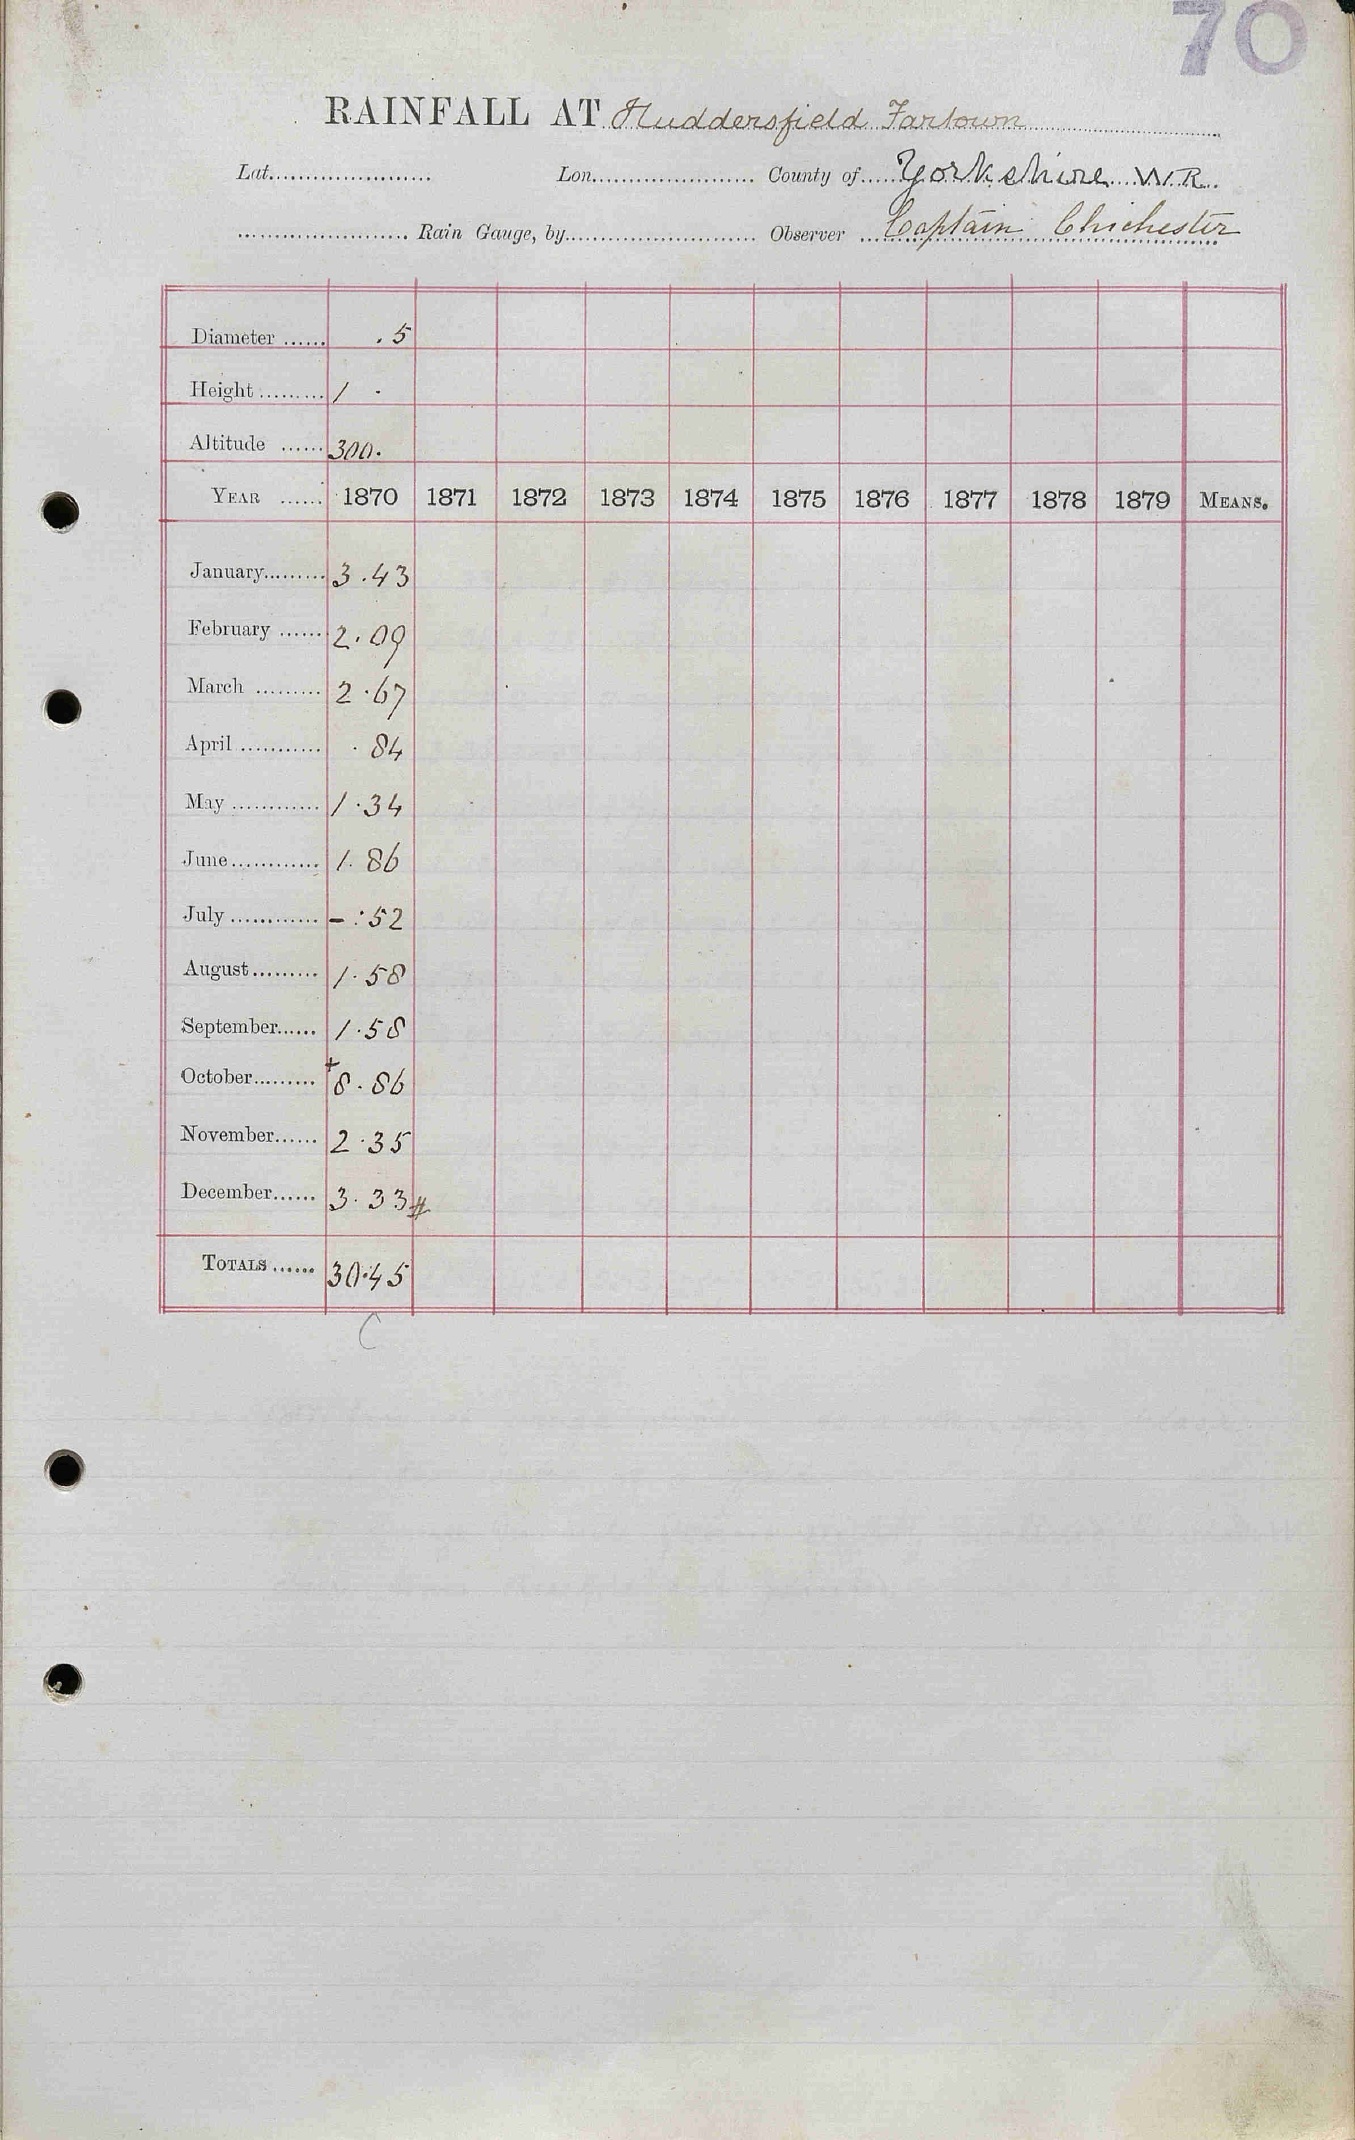 70
RAINFALL AT Huddersfield Fartown
Lat. Lon. County of Yorkshire W.R.
Rain Gauge, by Observer Captain Chichester
Diameter .5
Height 1 .
Altitude 300.
YEAR 1870 1871 1872 1873 1874 1875 1876 1877 1878 1879 MEANS.
January 3.43
February 2.09
March 2.67
April .84
May 1.34
June 1.86
July - .52
August 1.58
September 1.58
October +8.86
November 2.35
December 3.33 #
TOTALS 30.45
C